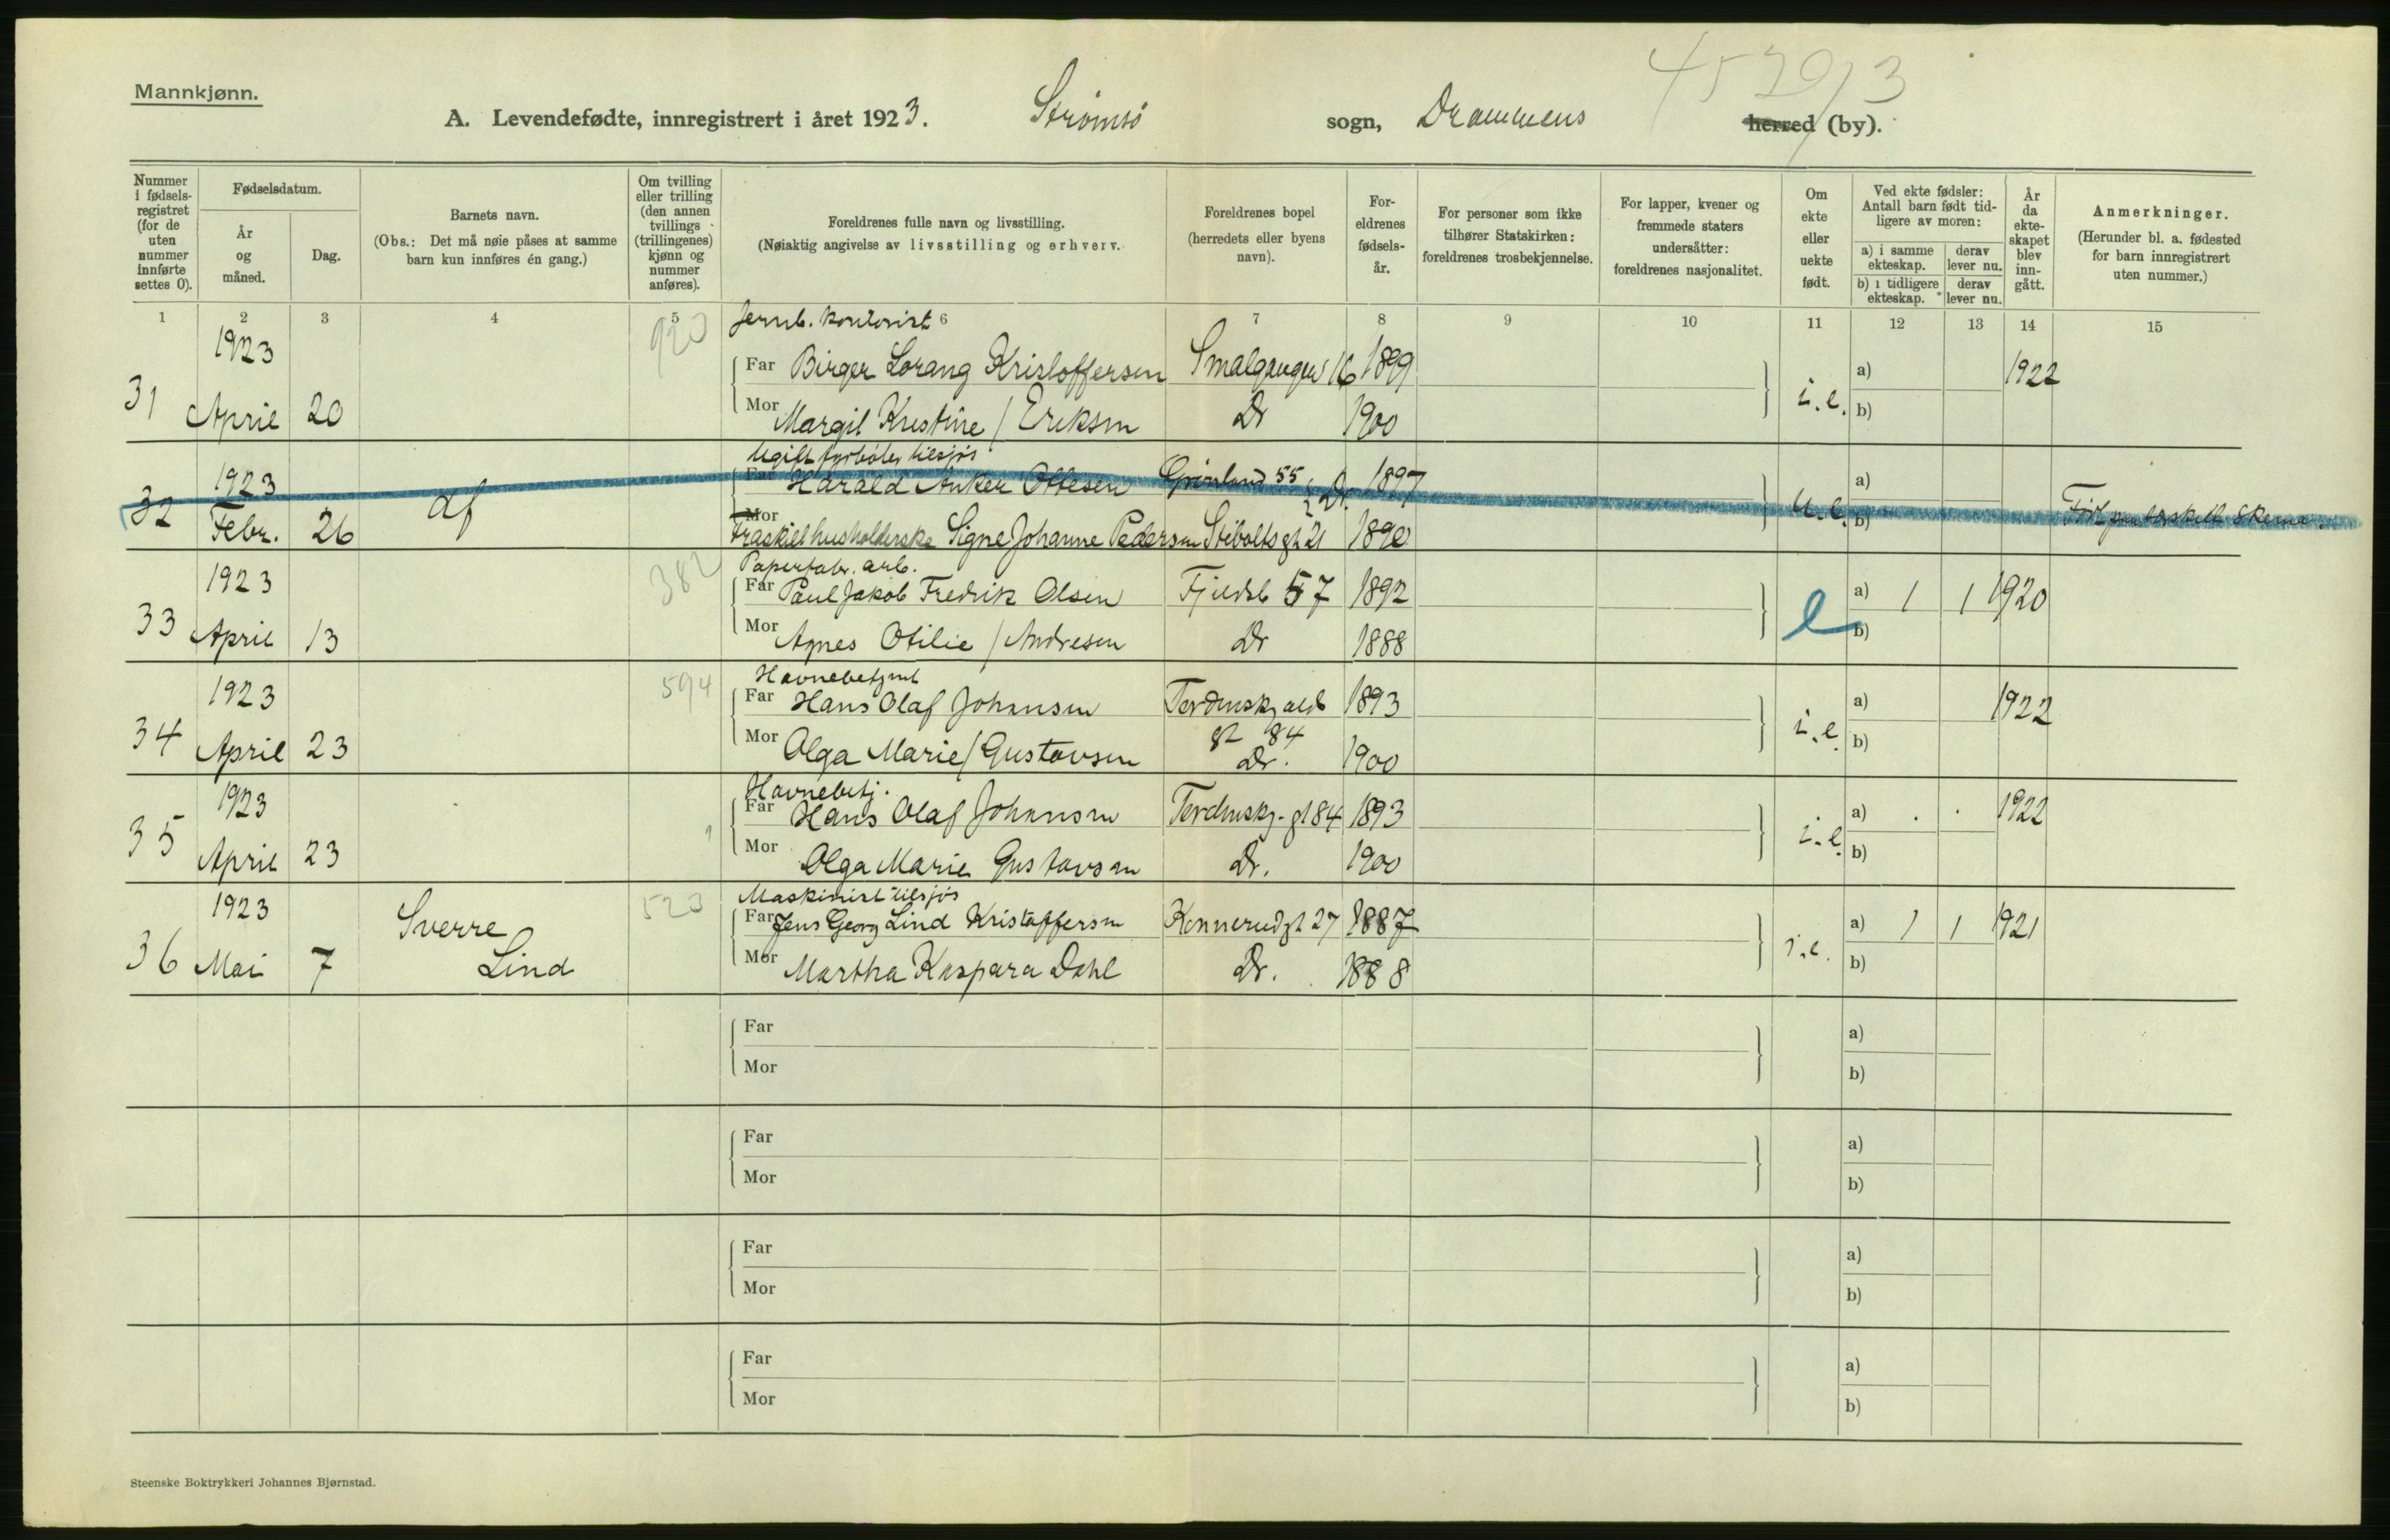 Mannkjønn.
45 29/3
A. Levendefødte, innregistrert i året 1923. Strømsø sogn, Drammens herred (by).
Nummer i fødsels-registret (for de uten nummer innførte settes 0).
Fødselsdatum.
År og måned.
Dag.
Barnets navn.
(Obs.: Det må nøie påses at samme barn kun innføres én gang.)
Om tvilling eller trilling (den annen tvillings (trillingenes) kjønn og nummer anføres).
Foreldrenes fulle navn og livsstilling.
(Nøiaktig angivelse av livsstilling og erhverv.
Foreldrenes bopel (herredets eller byens navn).
For-eldrenes fødsels-år.
For personer som ikke tilhører Statskirken: foreldrenes trosbekjennelse.
For lapper, kvener og fremmede staters undersåtter: foreldrenes nasjonalitet.
Om ekte eller uekte født.
Ved ekte fødsler: Antall barn født tid-ligere av moren:
a) i samme ekteskap.
derav lever nu.
b) i tidligere ekteskap.
derav lever nu.
År da ekte-skapet blev inn-gått.
Anmerkninger.
(Herunder bl. a. fødested for barn innregistrert uten nummer.)
1 2 3 4 5 6 7 8 9 10 11 12 13 14 15
1923 920 Jernb. kontorist
Far Birger Lorang Kristoffersen Smalgangen 16 1899 a) 1922
31 April 20 Mor Margit Kristine / Eriksen Dr 1900 i.e. b)
1923 Ugift fyrbøter tilsjøs
Far Harald Anker Ottesen Grønland 55 Dr. 1897 a)
32 Febr. 26 af Mor Fraskilt husholderske Signe Johanne Pedersen Stiboltsgt 21 1890 u.e. b) Ført paa særskilt skema.
1923 382 Papirfabr. arb.
Far Paul Jakob Fredrik Olsen Fjeldsb 57 1892 a) 1 1 1920
33 April 13 Mor Agnes Otilie / Andresen Dr 1888 e b)
1923 594 Havnebetjent
Far Hans Olaf Johansen Tordenskjolds 1893 a) 1922
34 April 23 Mor Olga Marie / Gustavsen gt 84 Dr. 1900 i.e. b)
1923 Havnebetj.
Far Hans Olaf Johansen Tordenskj. gt 84 1893 a) 1922
35 April 23 Mor Olga Marie Gustavsen Dr. 1900 i.e. b)
1923 Sverre 523 Maskinist tilsjøs
Far Jens Georg Lind Kristoffersen Konnerudgt 27 1887 a) 1 1 1921
36 Mai 7 Lind Mor Martha Kaspara Dahl Dr. 1888 i.e. b)
Far a)
Mor b)
Far a)
Mor b)
Far a)
Mor b)
Far a)
Mor b)
Steenske Boktrykkeri Johannes Bjørnstad.